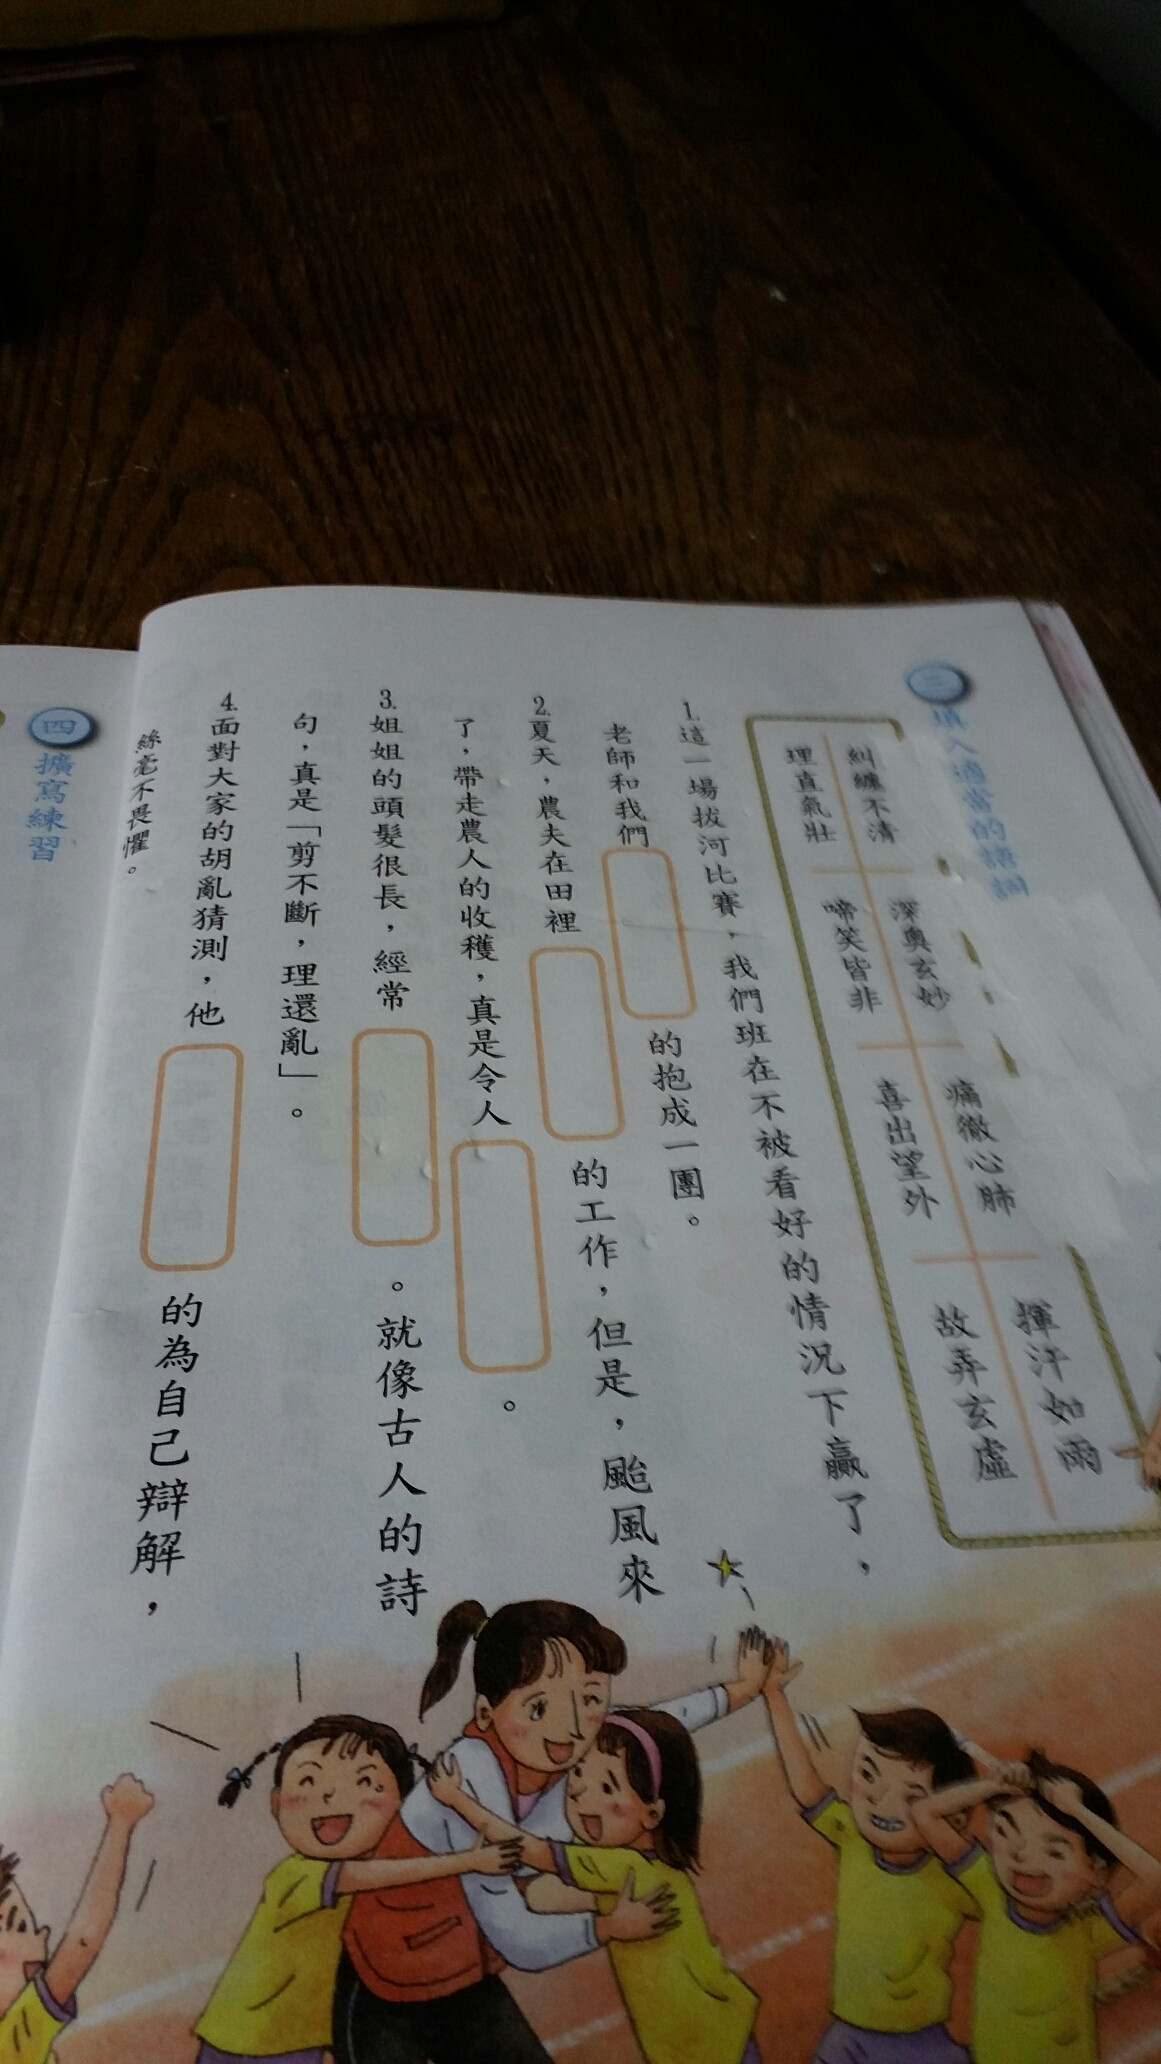 三 填入適當的語詞
糾纏不清 深奧玄妙 痛徹心肺 揮汗如雨
理直氣壯 啼笑皆非 喜出望外 故弄玄虛
1.這一場拔河比賽，我們班在不被看好的情況下贏了，
老師和我們 的抱成一團。
2.夏天，農夫在田裡 的工作，但是，颱風來
了，帶走農人的收穫，真是令人 。
3.姐姐的頭髮很長，經常 。就像古人的詩
句，真是「剪不斷，理還亂」。
4.面對大家的胡亂猜測，他 的為自己辯解，
絲毫不畏懼。
四 擴寫練習